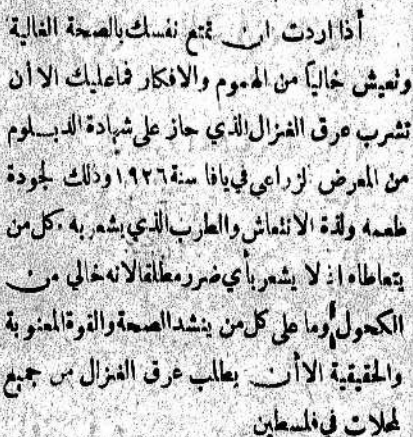 أذا اردت ان تمتع نفسك بالصحة الغالية
وتعيش خالياً من الهموم والافكار فما عليك الا أن
تشرب عرق الغزال الذي حاز على شهادة الدبلوم
من المعرض الزراعي في يافا سنة ١٩٢٦ وذلك لجودة
طعمه ولذة الانتعاش والطرب الذي يشعر به كل من
يتعاطاه اذ لا يشعر بأي ضرر مطلقا لانه خالي من
الكحول وما على كل من ينشد الصحة والقوة المعنوية
والحقيقية الا أن يطلب عرق الغزال من جميع
لمحلات في فلسطين